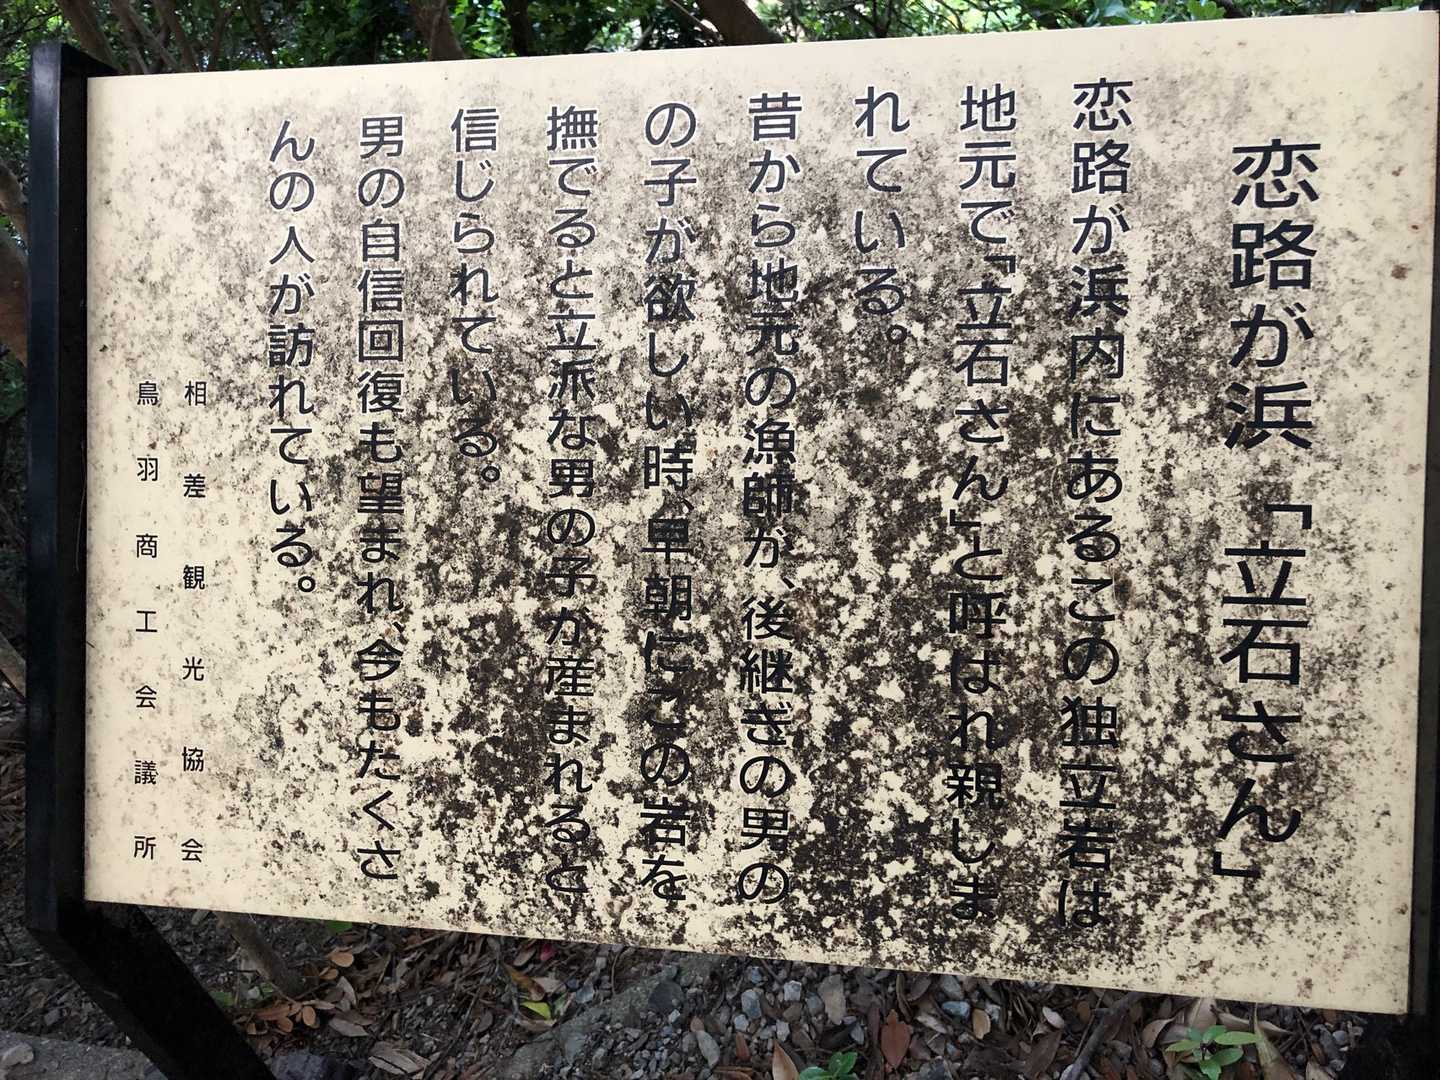 恋路が浜「立石さん」
恋路が浜内にあるこの独立岩は
地元で「立石さん」と呼ばれ親しま
れている。
昔から地元の漁師が、後継ぎの男の
の子が欲しい時、早朝にこの岩を
撫でると立派な男の子が産まれると
信じられている。
男の自信回復も望まれ、今もたくさ
んの人が訪れている。
相差観光協会
鳥羽商工会議所